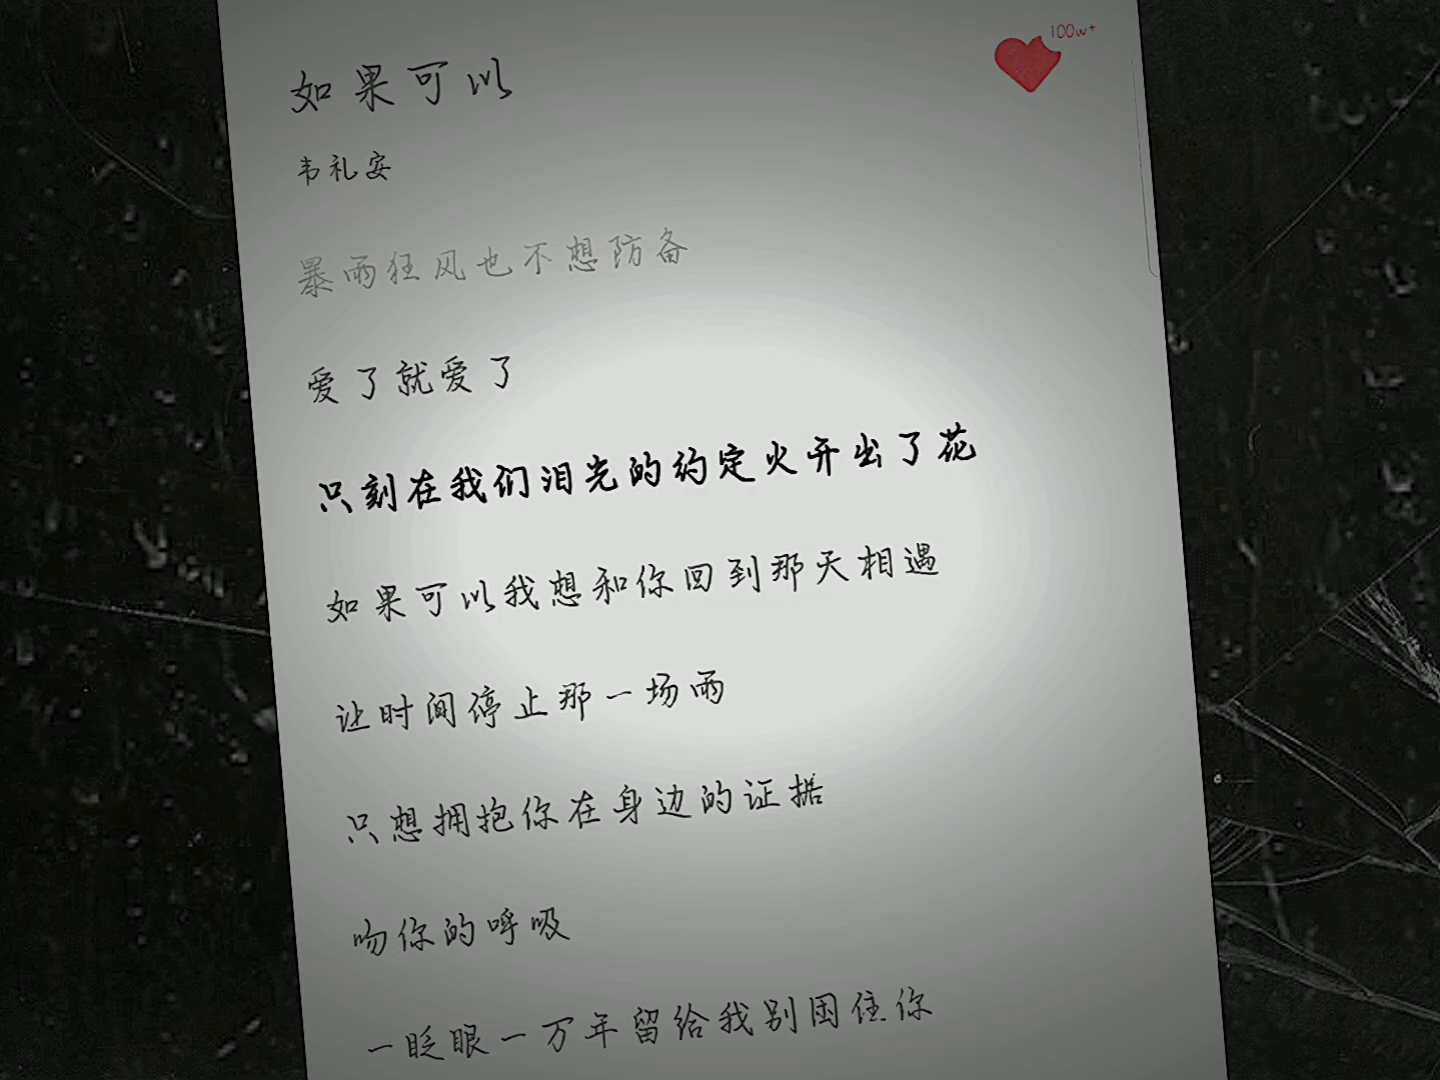 如果可以
100w+
韦礼安
暴雨狂风也不想防备
爱了就爱了
只刻在我们泪光的约定火开出了花
如果可以我想和你回到那天相遇
让时间停止那一场雨
只想拥抱你在身边的证据
吻你的呼吸
一眨眼一万年留给我别困住你